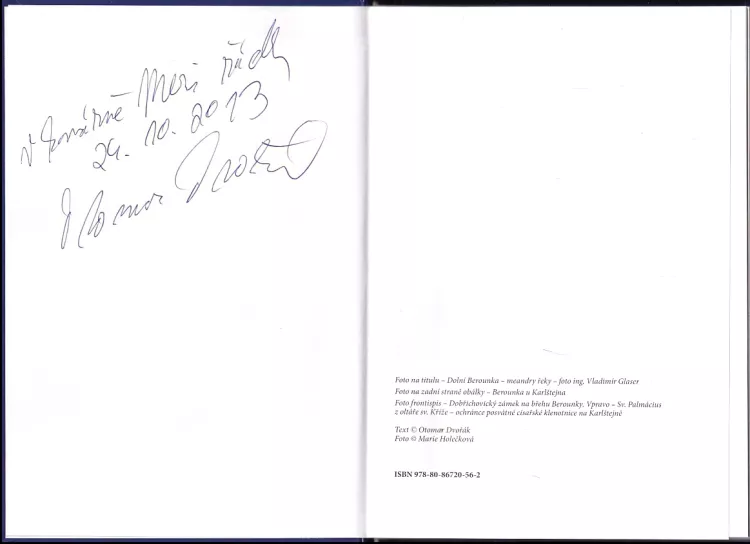 V kavárně Mezi řádky
24. 10. 2013
Otomar Dvořák
Foto na titulu – Dolní Berounka – meandry řeky – foto ing. Vladimír Glaser
Foto na zadní straně obálky – Berounka u Karlštejna
Foto frontispis – Dobřichovický zámek na břehu Berounky. Vpravo – Sv. Palmácius
z oltáře sv. Kříže – ochránce posvátné císařské klenotnice na Karlštejně
Text © Otomar Dvořák
Foto © Marie Holečková
ISBN 978-80-86720-56-2